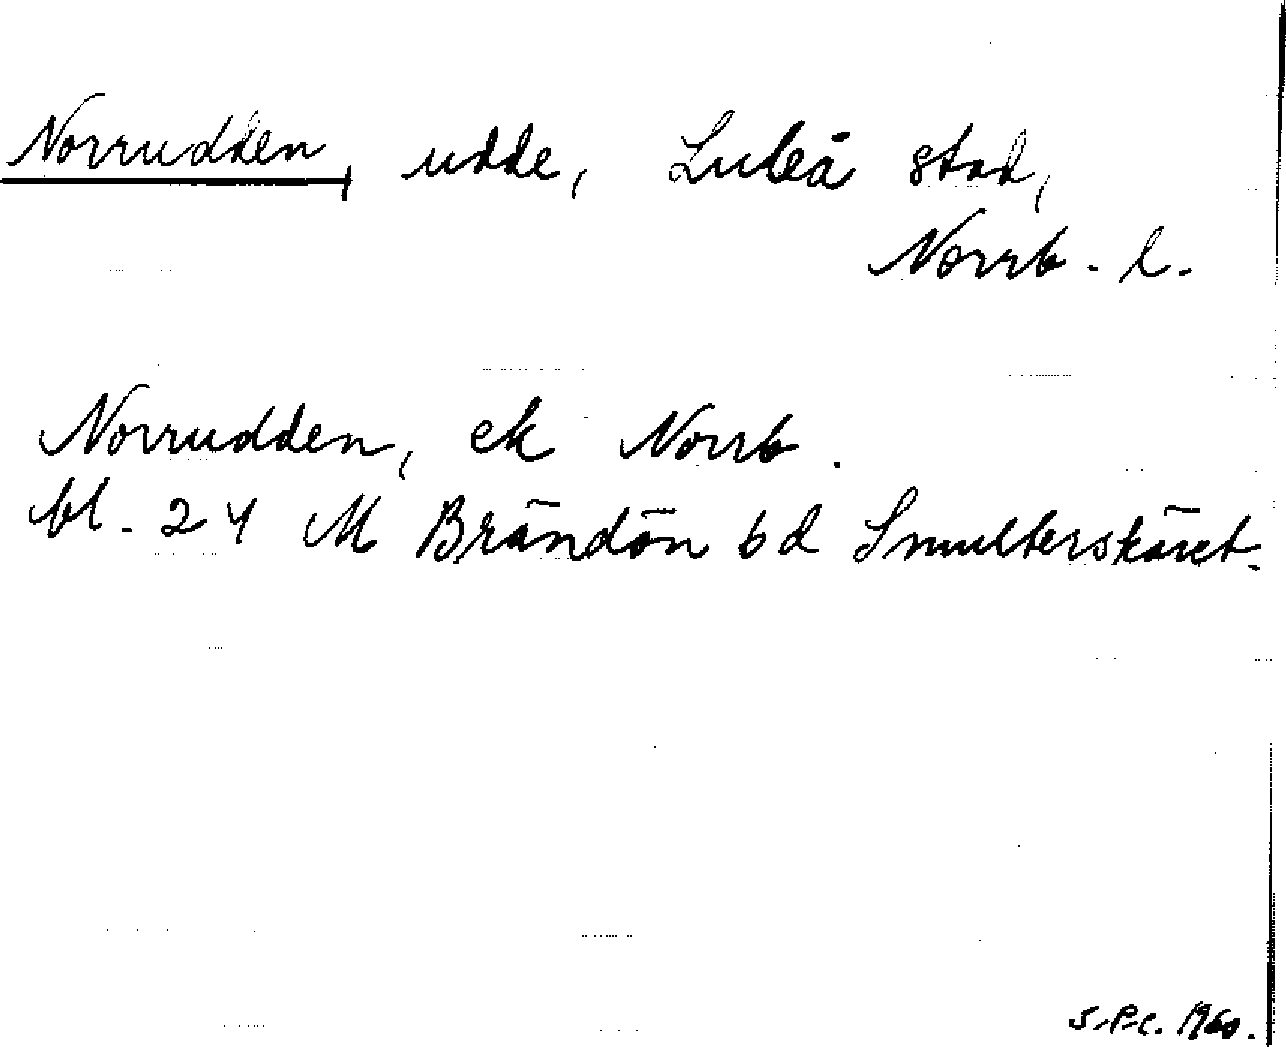 Norrudden, udde, Luleå stad,
Norrb. l.
Norrudden, ek Norrb.
bl. 24 M Brändön bd Smulterskäret.
S.P.C. 1960.